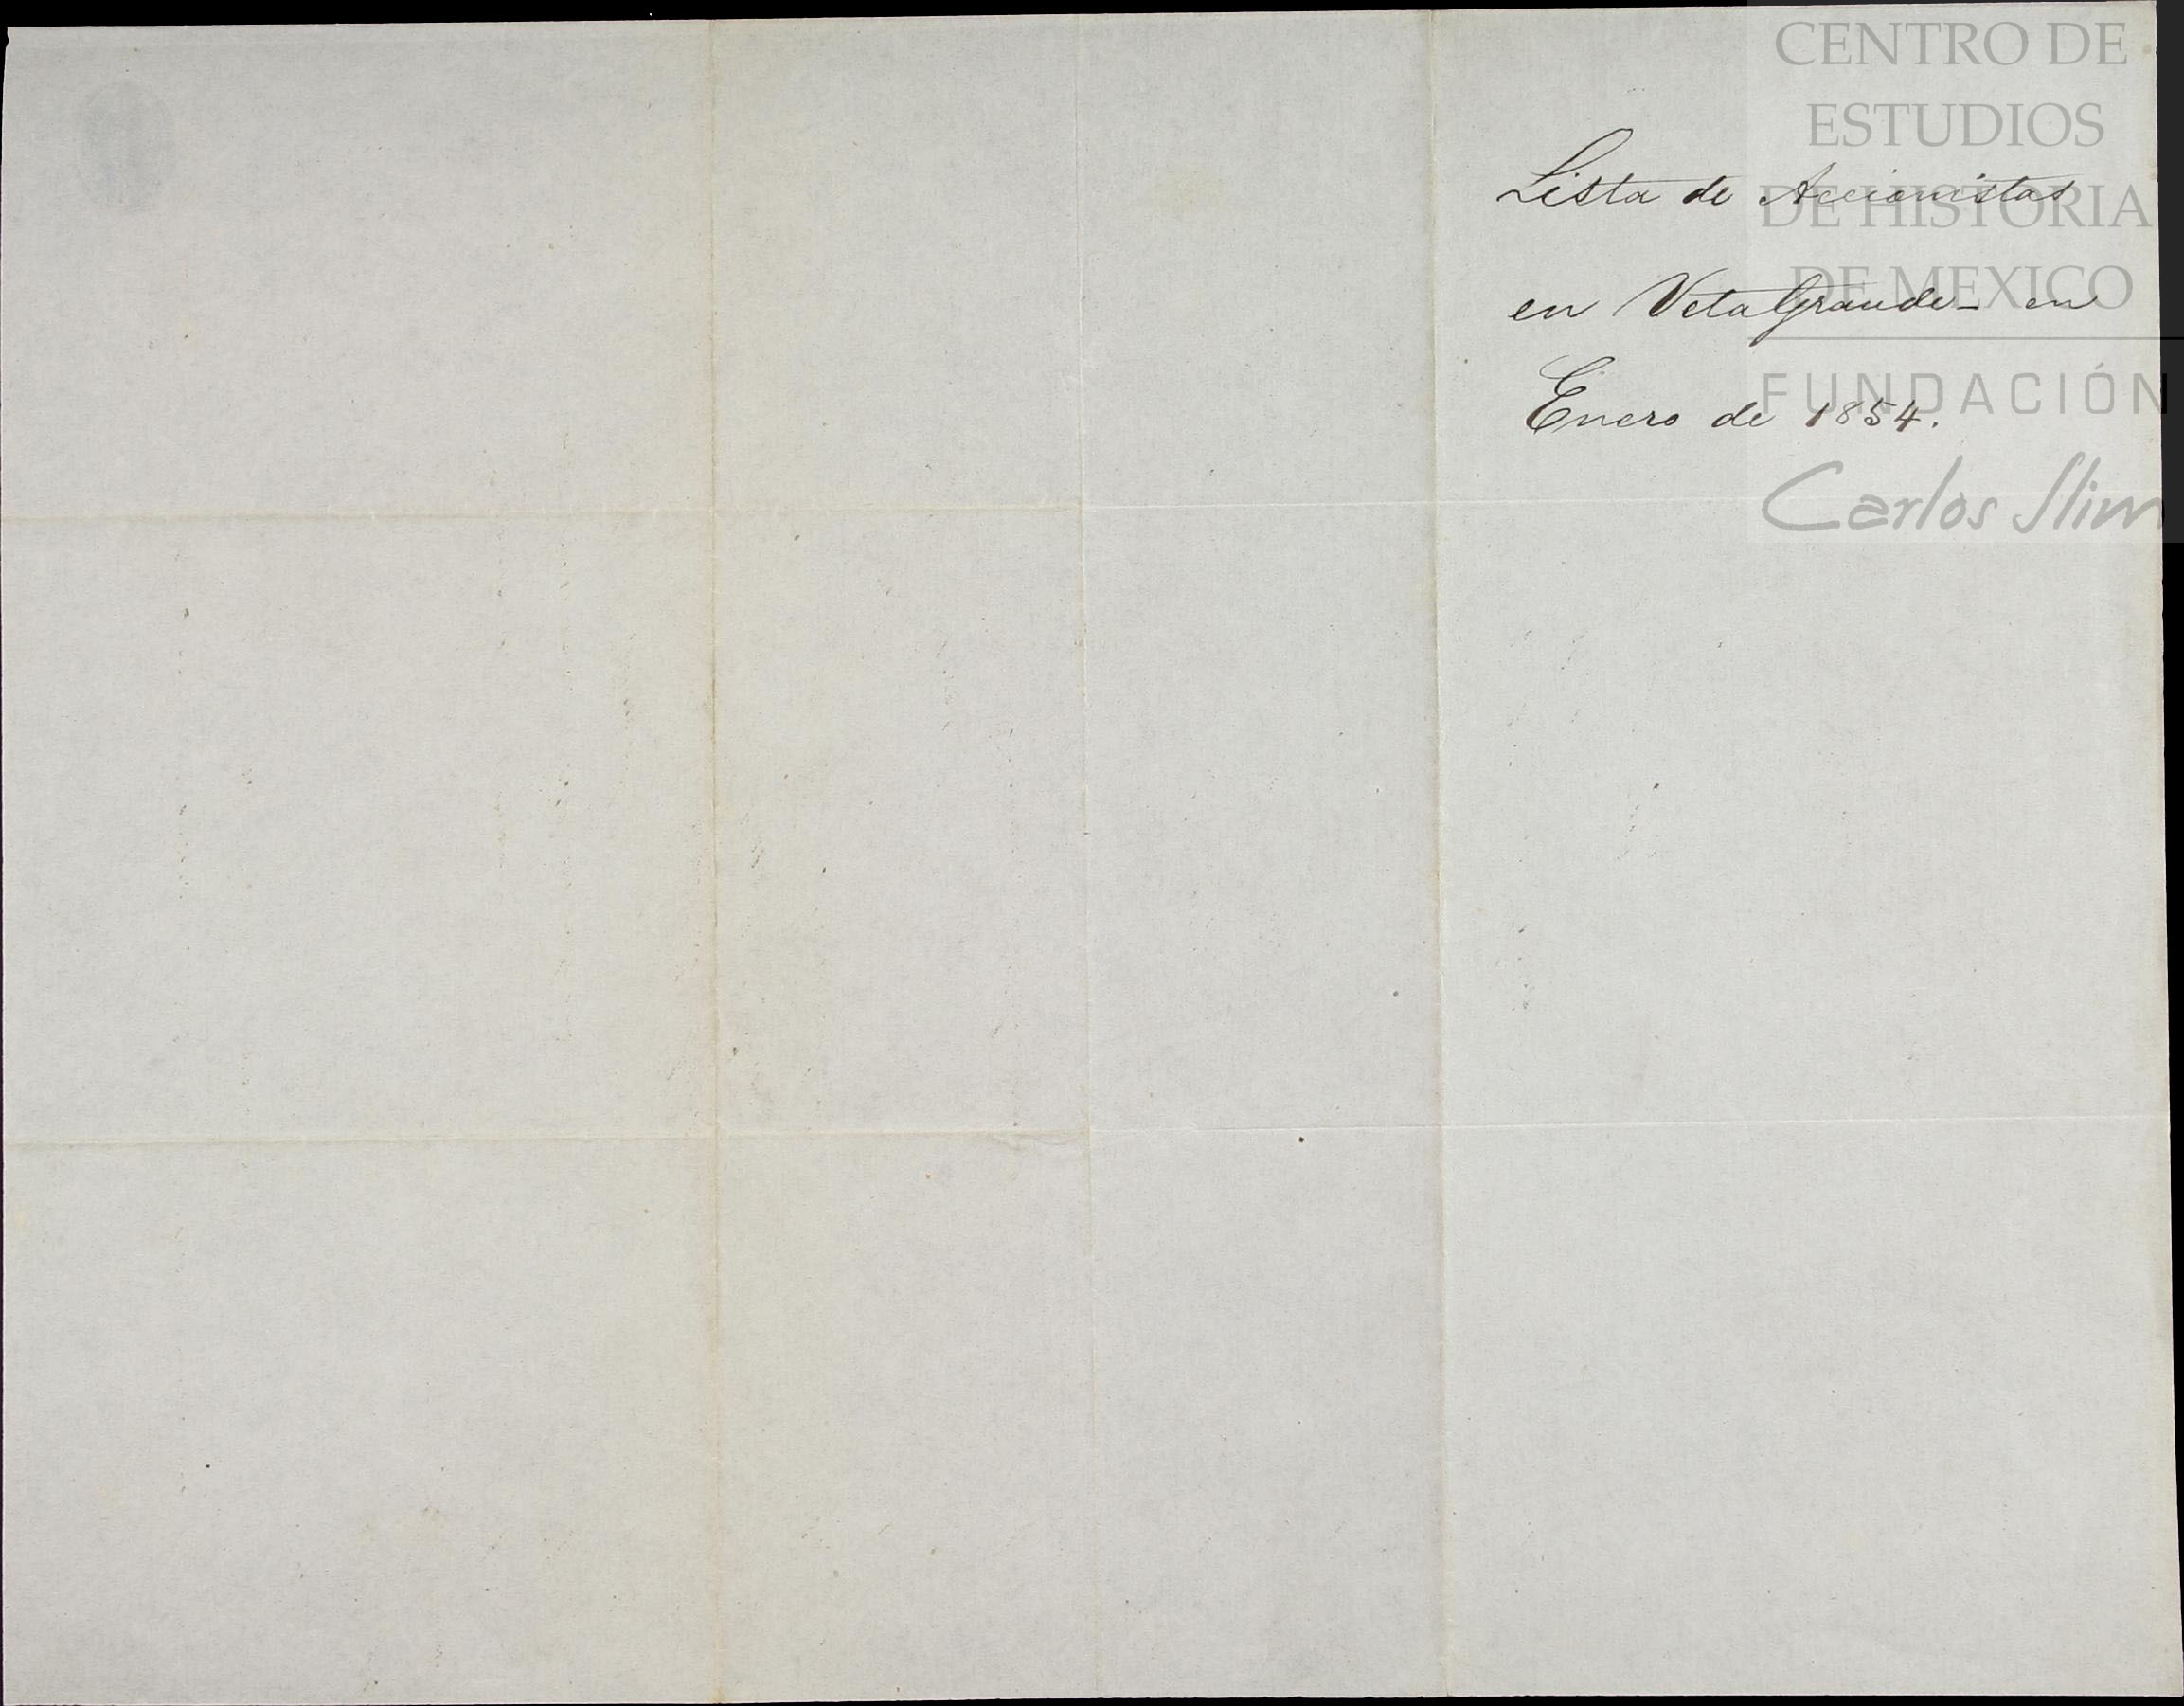 Lista de Accionistas
en Veta Grande - en
Enero de 1854.
CENTRO DE
ESTUDIOS
DE HISTORIA
DE MEXICO
FUNDACIÓN
Carlos Slim